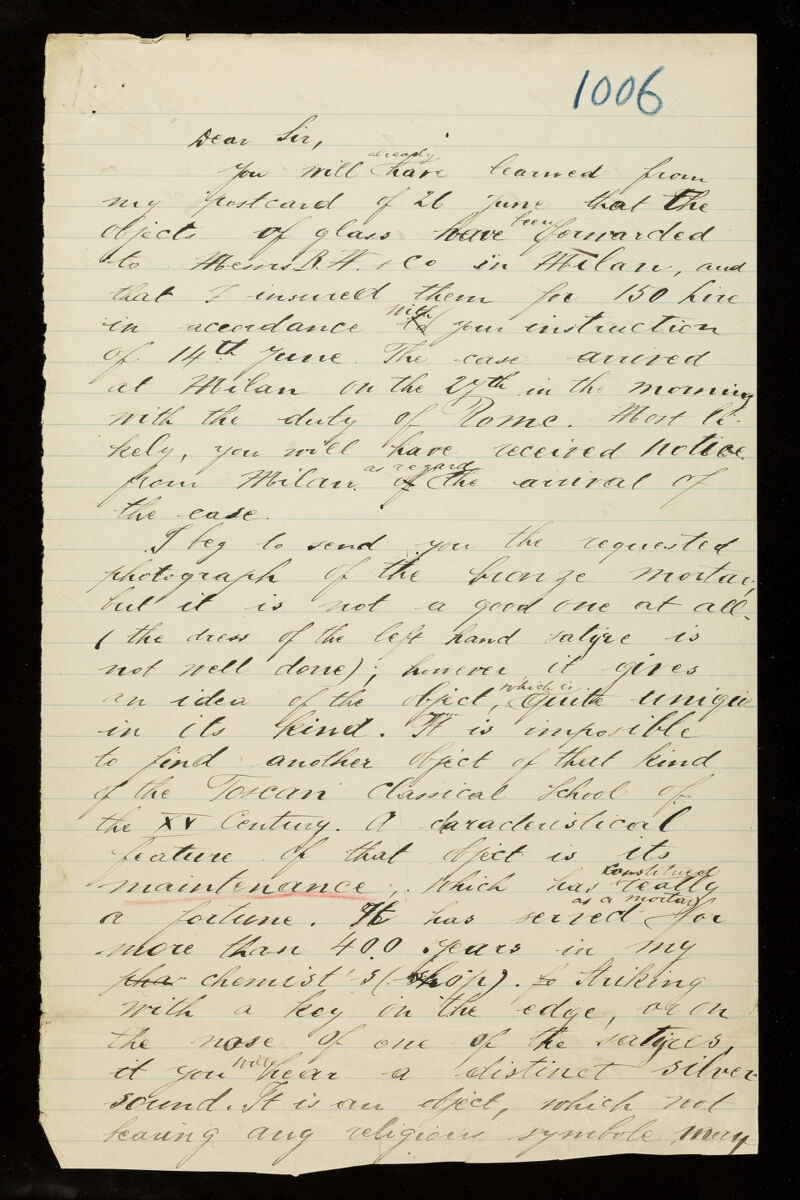 1006
Dear Sir,
already
You will have learned from
my postcard of 26 June that the
been
objects of glass have forwarded
to Messrs R. W. & Co in Milan, and
that I insured them for 150 lire
with
in accordance to your instruction
of 14th June. The case arrived
at Milan on the 27th in the morning
with the duty of Rome. Most li-
kely, you will have received notice
as regard
from Milan of the arrival of
the case.
I beg to send you the requested
photograph of the bronze mortar,
but it is not a good one at all.
(the dress of the left hand satyre is
not well done); however it gives
which is
an idea of the object, quite unique
in its kind. It is impossible
to find another object of that kind
of the Toscan Classical School of
the XV Century. A characteristical
feature of that object is its
constitued
maintenance, which has really
as a mortar
a fortune. It has served for
more than 400 years in my
pha chemist's (shop). So Striking
with a key on the edge, or on
the nose of one of the satyres,
will
it you hear a distinct silver
sound. It is an object, which not
bearing any religious symbole may